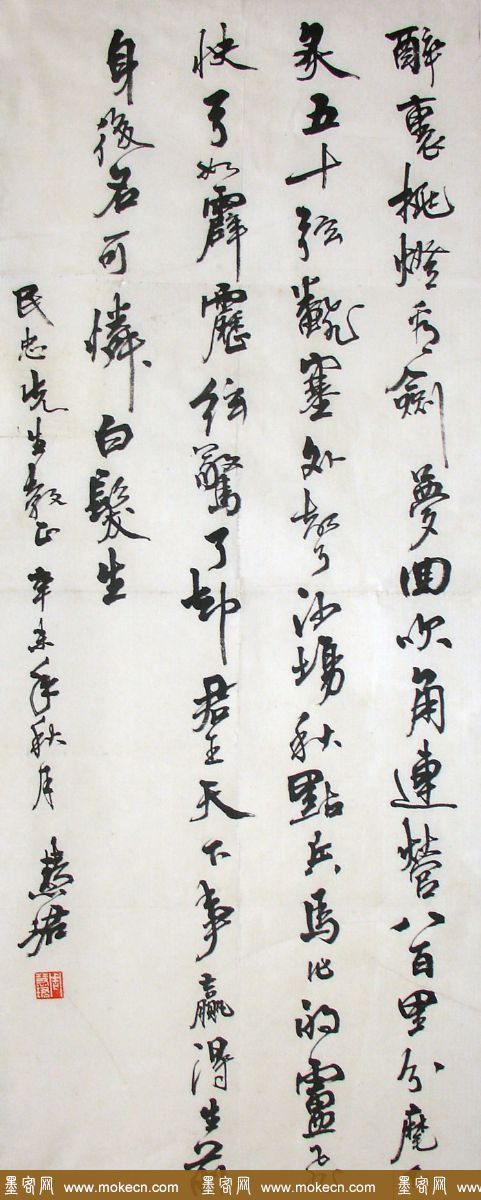 醉裏挑燈看劍夢回吹角連營八百里分麾
炙五十弦飜塞外聲沙場秋點兵馬作的盧飛
快弓如霹靂弦驚了却君王天下事贏得生前
身後名可憐白髮生
民忠先生教正 辛未年秋月 慧珺
墨客网 www.mokecn.com 墨客网 www.mokecn.com 墨客网 www.mokecn.com